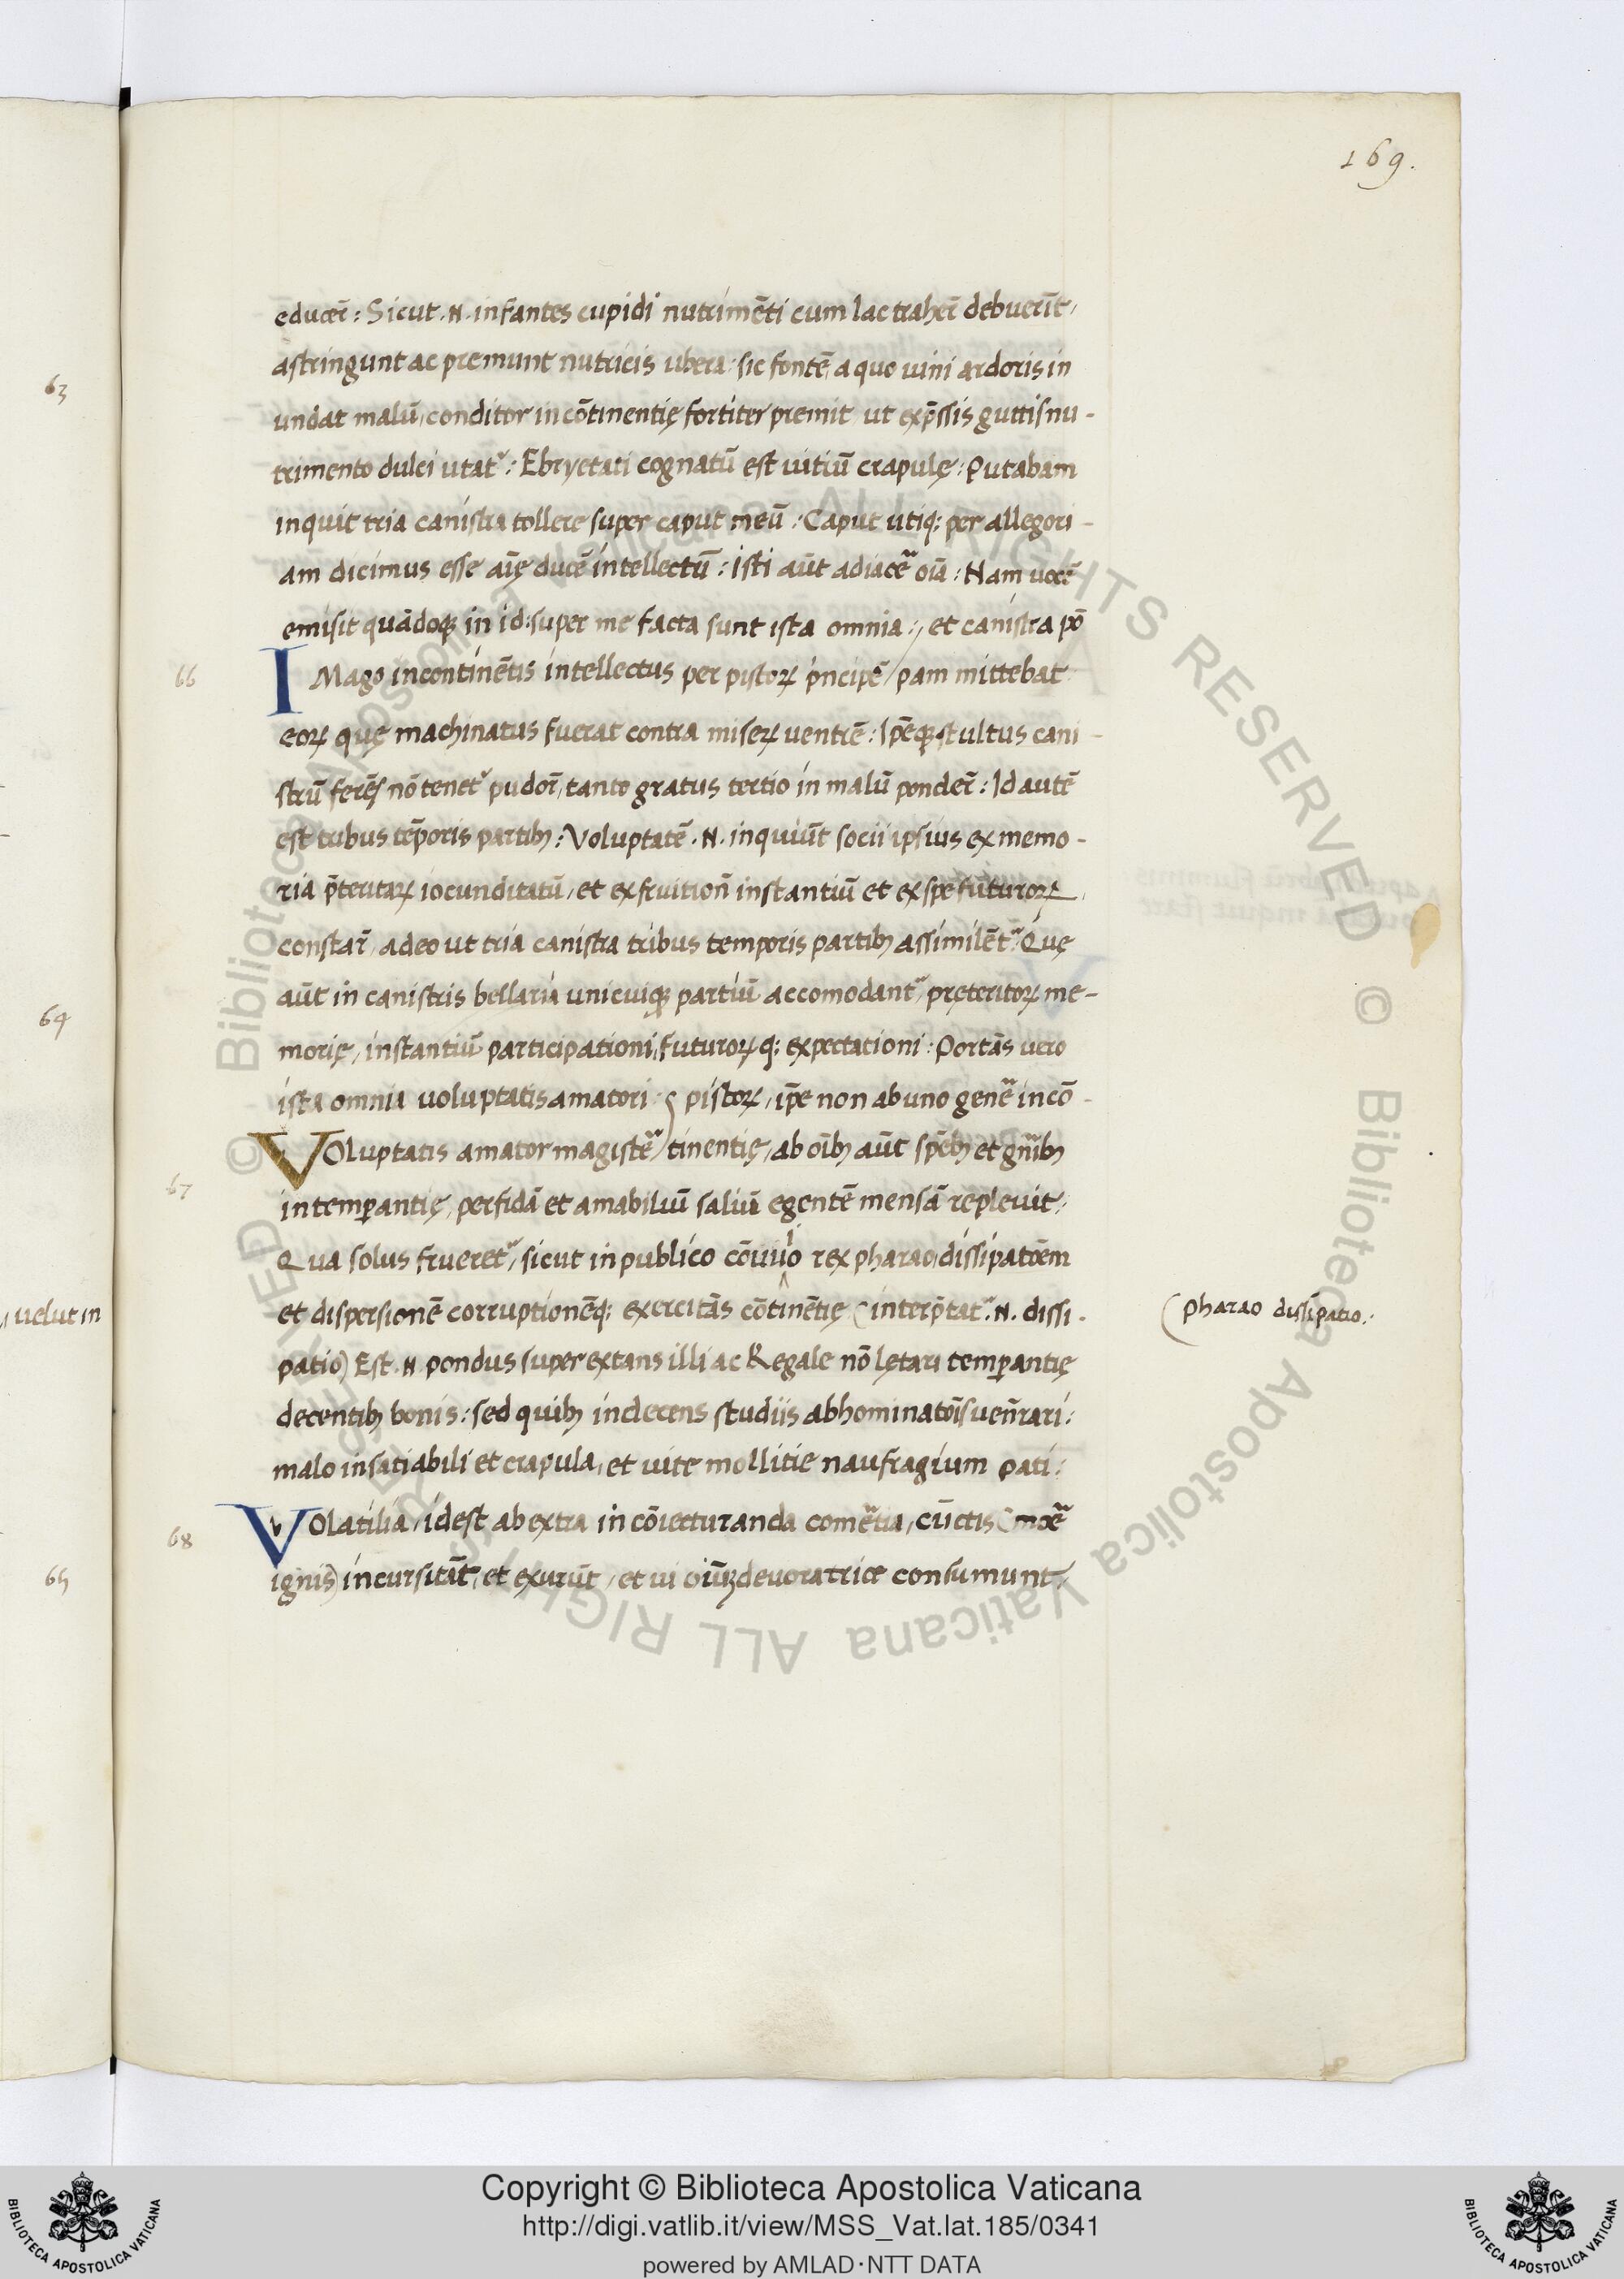 169.
educer̄: Sicut .N. infantes cupidi nutrimēti cum lac traher̄ debuerīt,
astringunt ac premunt nutricis ubera: sic fontē, a quo uini ardoris in
63
undat malū, conditor incōtinentię fortiter premit, ut exp̄ssis guttis nu-
trimento dulci utat᷑: Ebryetati cognatū est uitiū crapulę: Putabam
inquit tria canistra tollere super caput meū: Caput utiq; per allegori-
am dicimus esse aīę ducē intellectū: isti aūt adiace᷑ oīa: Nam uocē
emisit quādoq; in id: super me facta sunt ista omnia:, et canistra pō
66
IMago incontinētis intellectus per pistoꝝ p̄ncipē / pam mittebat
eoꝝ quę machinatus fuerat contra miseꝝ uentrē: Ip̄eq; stultus cani-
strū ferēs nō tenet᷑ pudor̄, tanto gratus tertio in malū ponder̄: Id autē
est tribus tēporis partibꝫ: Voluptatē .N. inquiūt socii ipsius ex memo-
ria p̄teritaꝝ iocunditatū, et ex fruitioñ instantiū et ex spe futuroꝝ,
constar̄, adeo ut tria canistra tribus temporis partibꝫ assimilēt᷑: Quę
aūt in canistris bellaria unicuiq; partiū accomodant᷑, pręteritoꝝ me-
64
morię, instantiū participationi, futuroꝝq; expectationi: Portās uero
ista omnia uoluptatis amatori: pistoꝝ, ip̄e non ab uno gene᷑ incō-
VOluptatis amator magiste᷑ / tinentię, ab oībꝫ aūt sp̄ebꝫ et gn̄ibꝫ
67
intemperantię, perfidā et amabiliū saliū egentē mensā repleuit:
Qua solus frueret᷑, sicut in publico cōuiuio rex pharao, dissipatōem
, uelut in
et dispersionē corruptionēq; exercitās cōtinētię (interp̄tat᷑ .N. dissi-
(Pharao dissipatio:
patio) Est .N. pondus super extans illi ac Regale nō lętari temperantię
decentibꝫ bonis: sed quibꝫ indecens studiis abhominatōis uen̄rari:
malo insatiabili et crapula, et uite mollitie naufragium pati:
VOlatilia, idest ab extra in cōiecturanda come᷑tia, cūctis (moe᷑
68
65
ignis) incursitāt, et exurūt, et ui oiūꝫ deuoratrice consumunt,
© Biblioteca Apostolica Vaticana ALL RIGHTS RESERVED
Copyright © Biblioteca Apostolica Vaticana
http://digi.vatlib.it/view/MSS_Vat.lat.185/0341
powered by AMLAD·NTT DATA
BIBLIOTECA APOSTOLICA VATICANA
BIBLIOTECA APOSTOLICA VATICANA